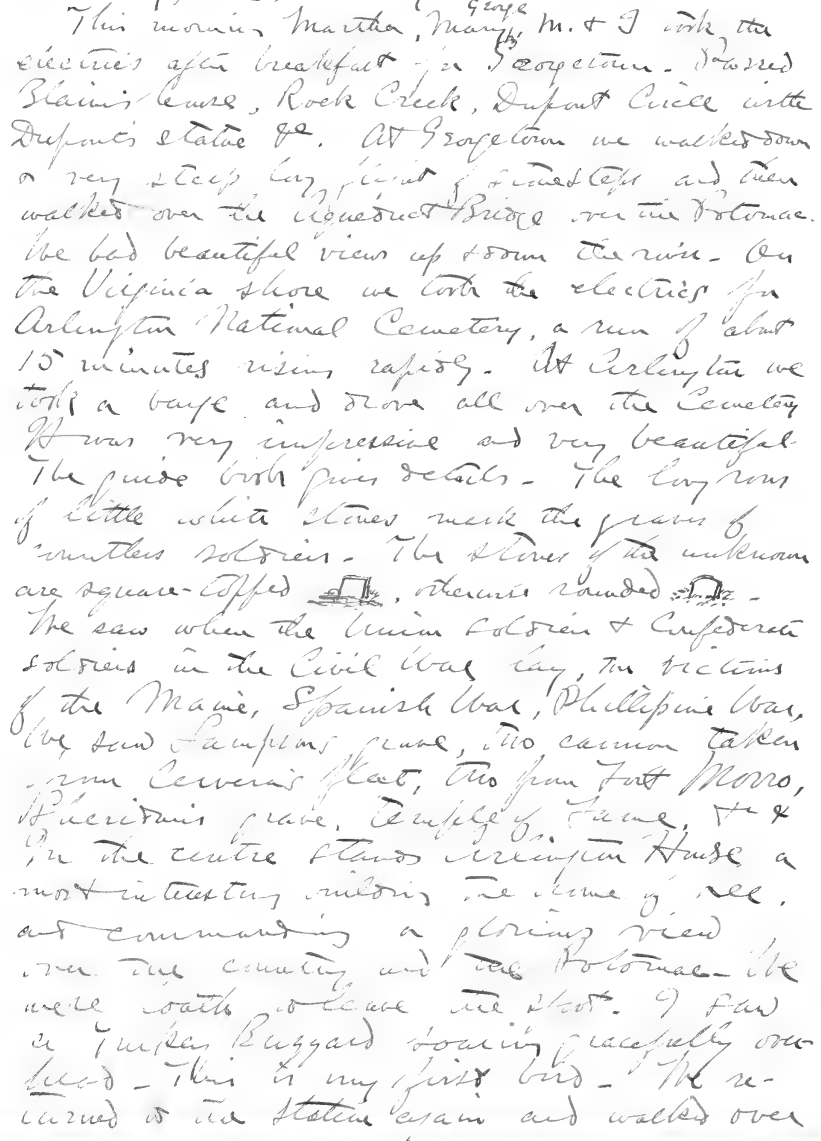 George
This morning Martha, Mary, M. & I took the
electrics after breakfast for Georgetown. Passed
Blaine's house, Rock Creek, Dupont Circle with
Dupont's statue &c. At Georgetown we walked down
a very steep long flight of stone steps and then
walked over the Aqueduct Bridge over the Potomac.
We had beautiful views up & down the river. On
the Virginia shore we took the electrics for
Arlington National Cemetery, a run of about
15 minutes rising rapidly. At Arlington we
took a barge and drove all over the Cemetery
It was very impressive and very beautiful.
The guide book gives details. The long rows
of little white stones mark the graves of
countless soldiers. The stones of the unknown
are square-topped , otherwise rounded .
We saw where the Union soldiers & Confederate
soldiers in the Civil War lay, the victims
of the Maine, Spanish War, Phillipine War,
We saw Sampson's grave, two cannon taken
from Cervera's fleet, two from Fort Morro,
Sheridan's grave, Temple of Fame, &c &
In the centre stands Arlington House a
most interesting building the home of Lee,
and commanding a glorious view
over the country and the Potomac. We
were loath to leave the spot. I saw
a Turkey Buzzard soaring gracefully over-
head - This is my first bird - We re-
turned to the station again and walked over